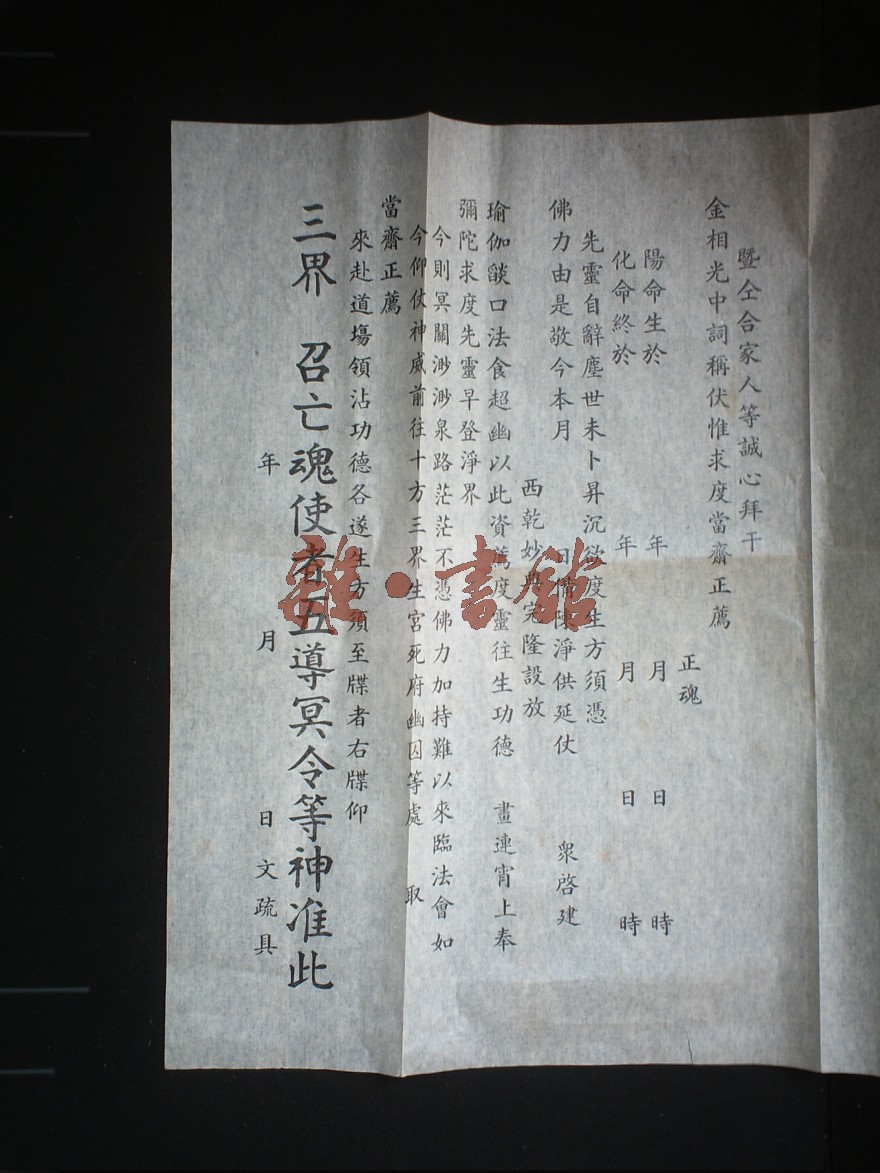 暨仝合家人等誠心拜干
金相光中詞稱伏惟求度當齋正薦
正魂
陽命生於 年 月 日 時
化命終於 年 月 日 時
先靈自辭塵世未卜昇沉欲度生方須憑
佛力由是敬今本月 日備陳淨供延仗 衆啓建
西乾妙典完隆設放
瑜伽燄口法食超幽以此資薦度靈往生功德 晝連宵上奉
彌陀求度先靈早登淨界
今則冥關渺渺泉路茫茫不憑佛力加持難以來臨法會如
今仰仗神威前往十方三界生宮死府幽囚等處 取
當齋正薦
來赴道場領沾功德各遂生方須至牒者右牒仰
三界 召亡魂使者五導冥令等神准此
年 月 日文疏具
雜·書館